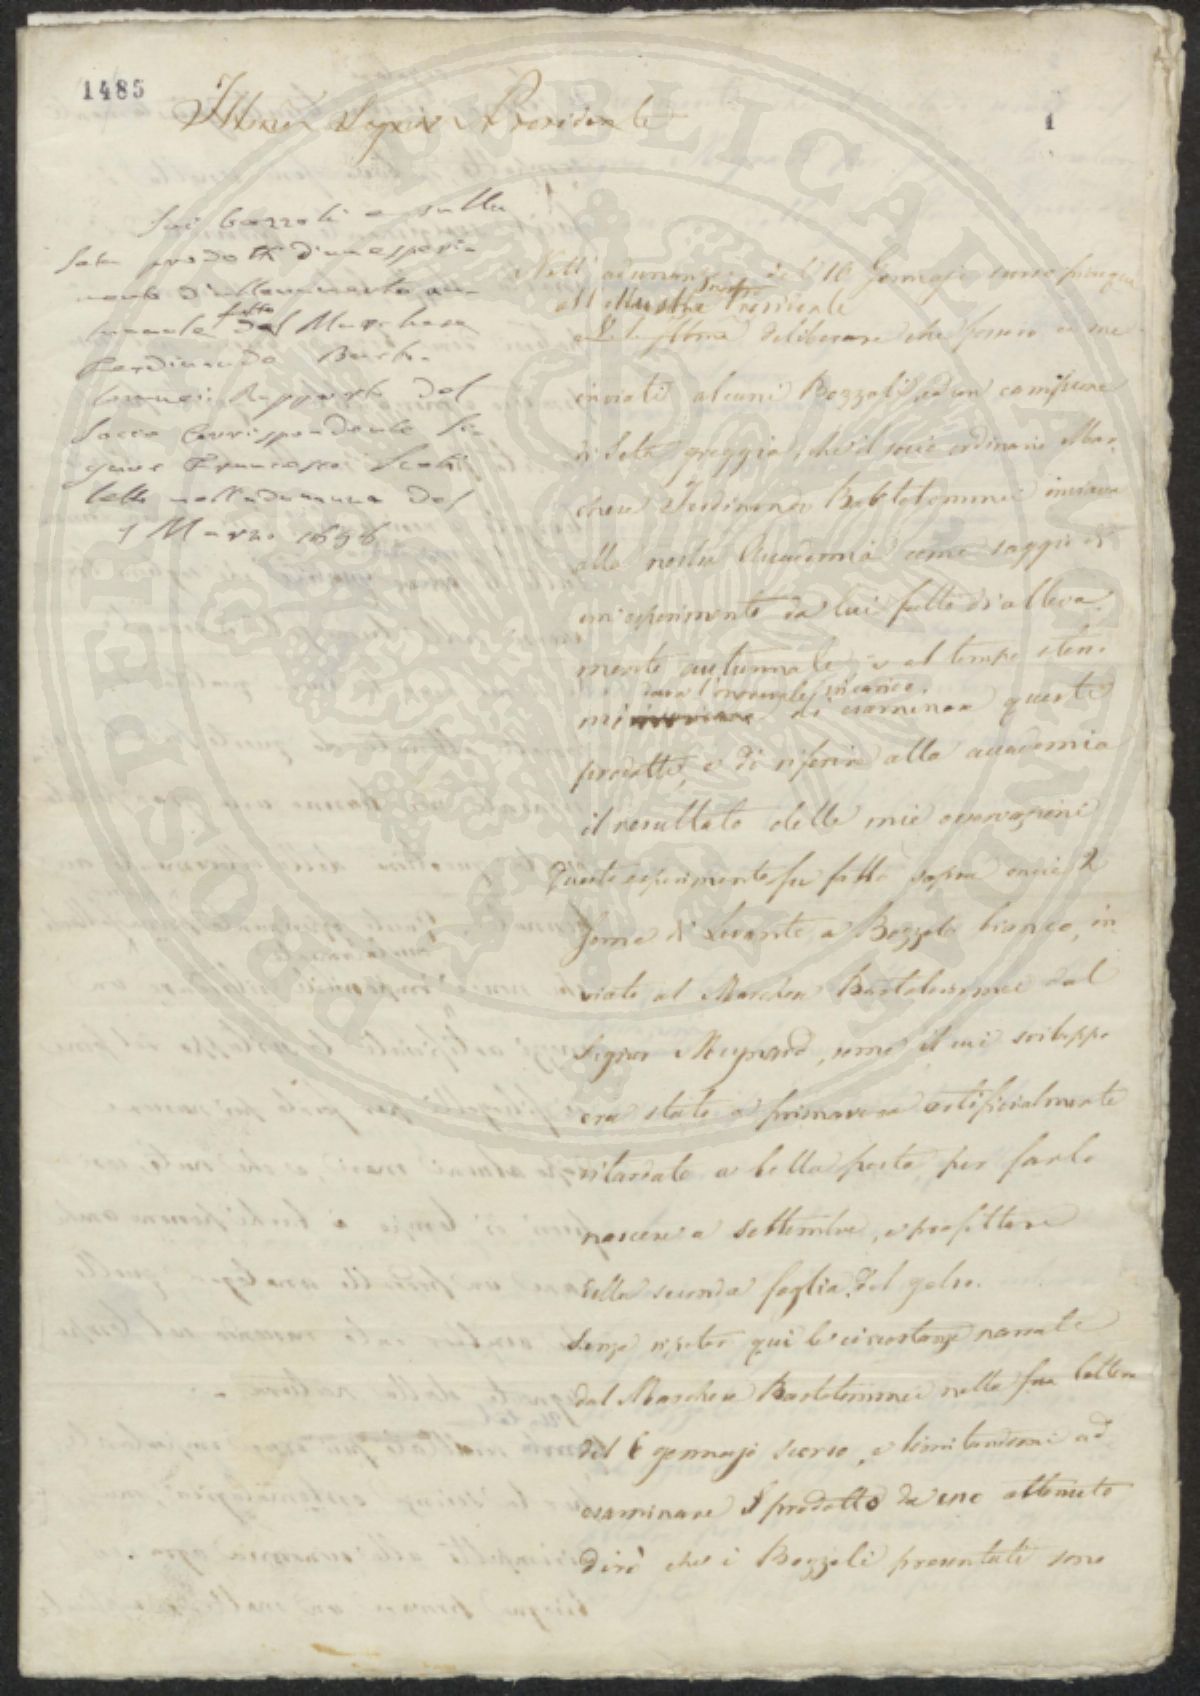 1485
Illmo Signor Presidente
1
Sui bozzoli e sulla
seta prodotti d'un esperi-
mento d'allevamento au-
tunnale fatto dal Marchese
Ferdinando Barto-
lommei: Rapporto del
Socio Corrispondente Si-
gnor Francesco Scoti
letto nell'adunanza del
1 Marzo 1856
Nell'adunanza del 16 Gennajo piacque
all'Illustre nostro Presidente
deliberare che fossero a me
inviati alcuni Bozzoli ed un campione
di Seta greggia, che il socio ordinario Mar-
chese Ferdinando Bartolommei inviava
alla nostra Accademia come saggio di
un esperimento da lui fatto di alleva-
mento autunnale, e al tempo stesso
mi dava l'onorevole incarico
di esaminare questi
prodotti, e di riferire alla accademia
il resultato delle mie osservazioni
Questo esperimento fu fatto sopra oncie 2
Seme di Levante a Bozzolo bianco, in
viato al Marchese Bartolommei dal
Signor Meynard, seme il cui sviluppo
era stato a primavera artificialmente
ritardato a bella posta per farlo
nascere a settembre, e profittare
della seconda foglia del gelso.
Senza ripeter qui le circostanze narrate
dal Marchese Bartolommei nella sua lettera
del 6 gennajo scorso, e limitandomi ad
esaminare il prodotto da esso ottenuto
dirò che i Bozzoli presentati sono
PROSPERITATI PUBLICAE AVGENDAE